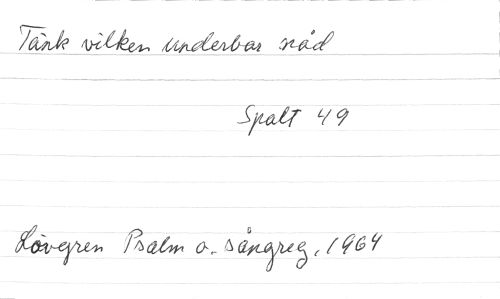 Tänk vilken underbar nåd
Spalt 49
Lövgren Psalm o. sångreg. 1964